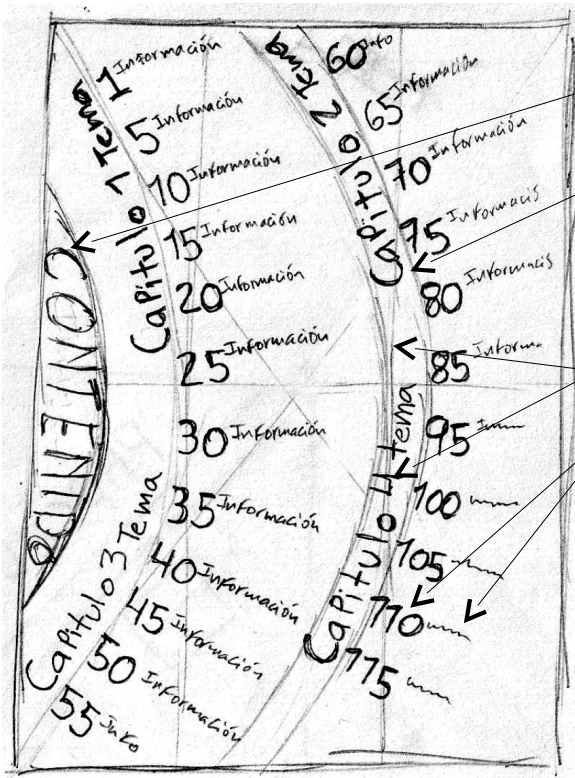 CONTENIDO
Capitulo 1 Tema
1 Información
5 Información
10 Información
15 Información
20 Información
25 Información
30 Información
Capitulo 3 Tema
35 Información
40 Información
45 Información
50 Información
55 Info
Capitulo 2 Tema
60 Info
65 Información
70 Información
75 Informació
80 Informació
85 Informa
Capitulo 4 tema
95
100
105
110
115